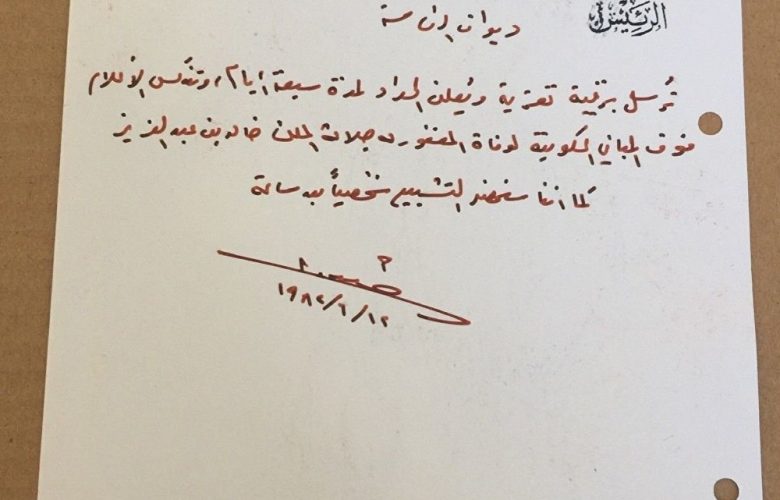 الرئيس
ديوان الرئاسة
تُرسل برقية تعزية ويُعلن الحداد لمدة سبعة أيام، وتنكس الأعلام
فوق المباني الحكومية لوفاة المغفور له جلالة الملك خالد بن عبد العزيز
كما اننا سنحضر التشييع شخصياً
١٩٨٢/٦/١٢